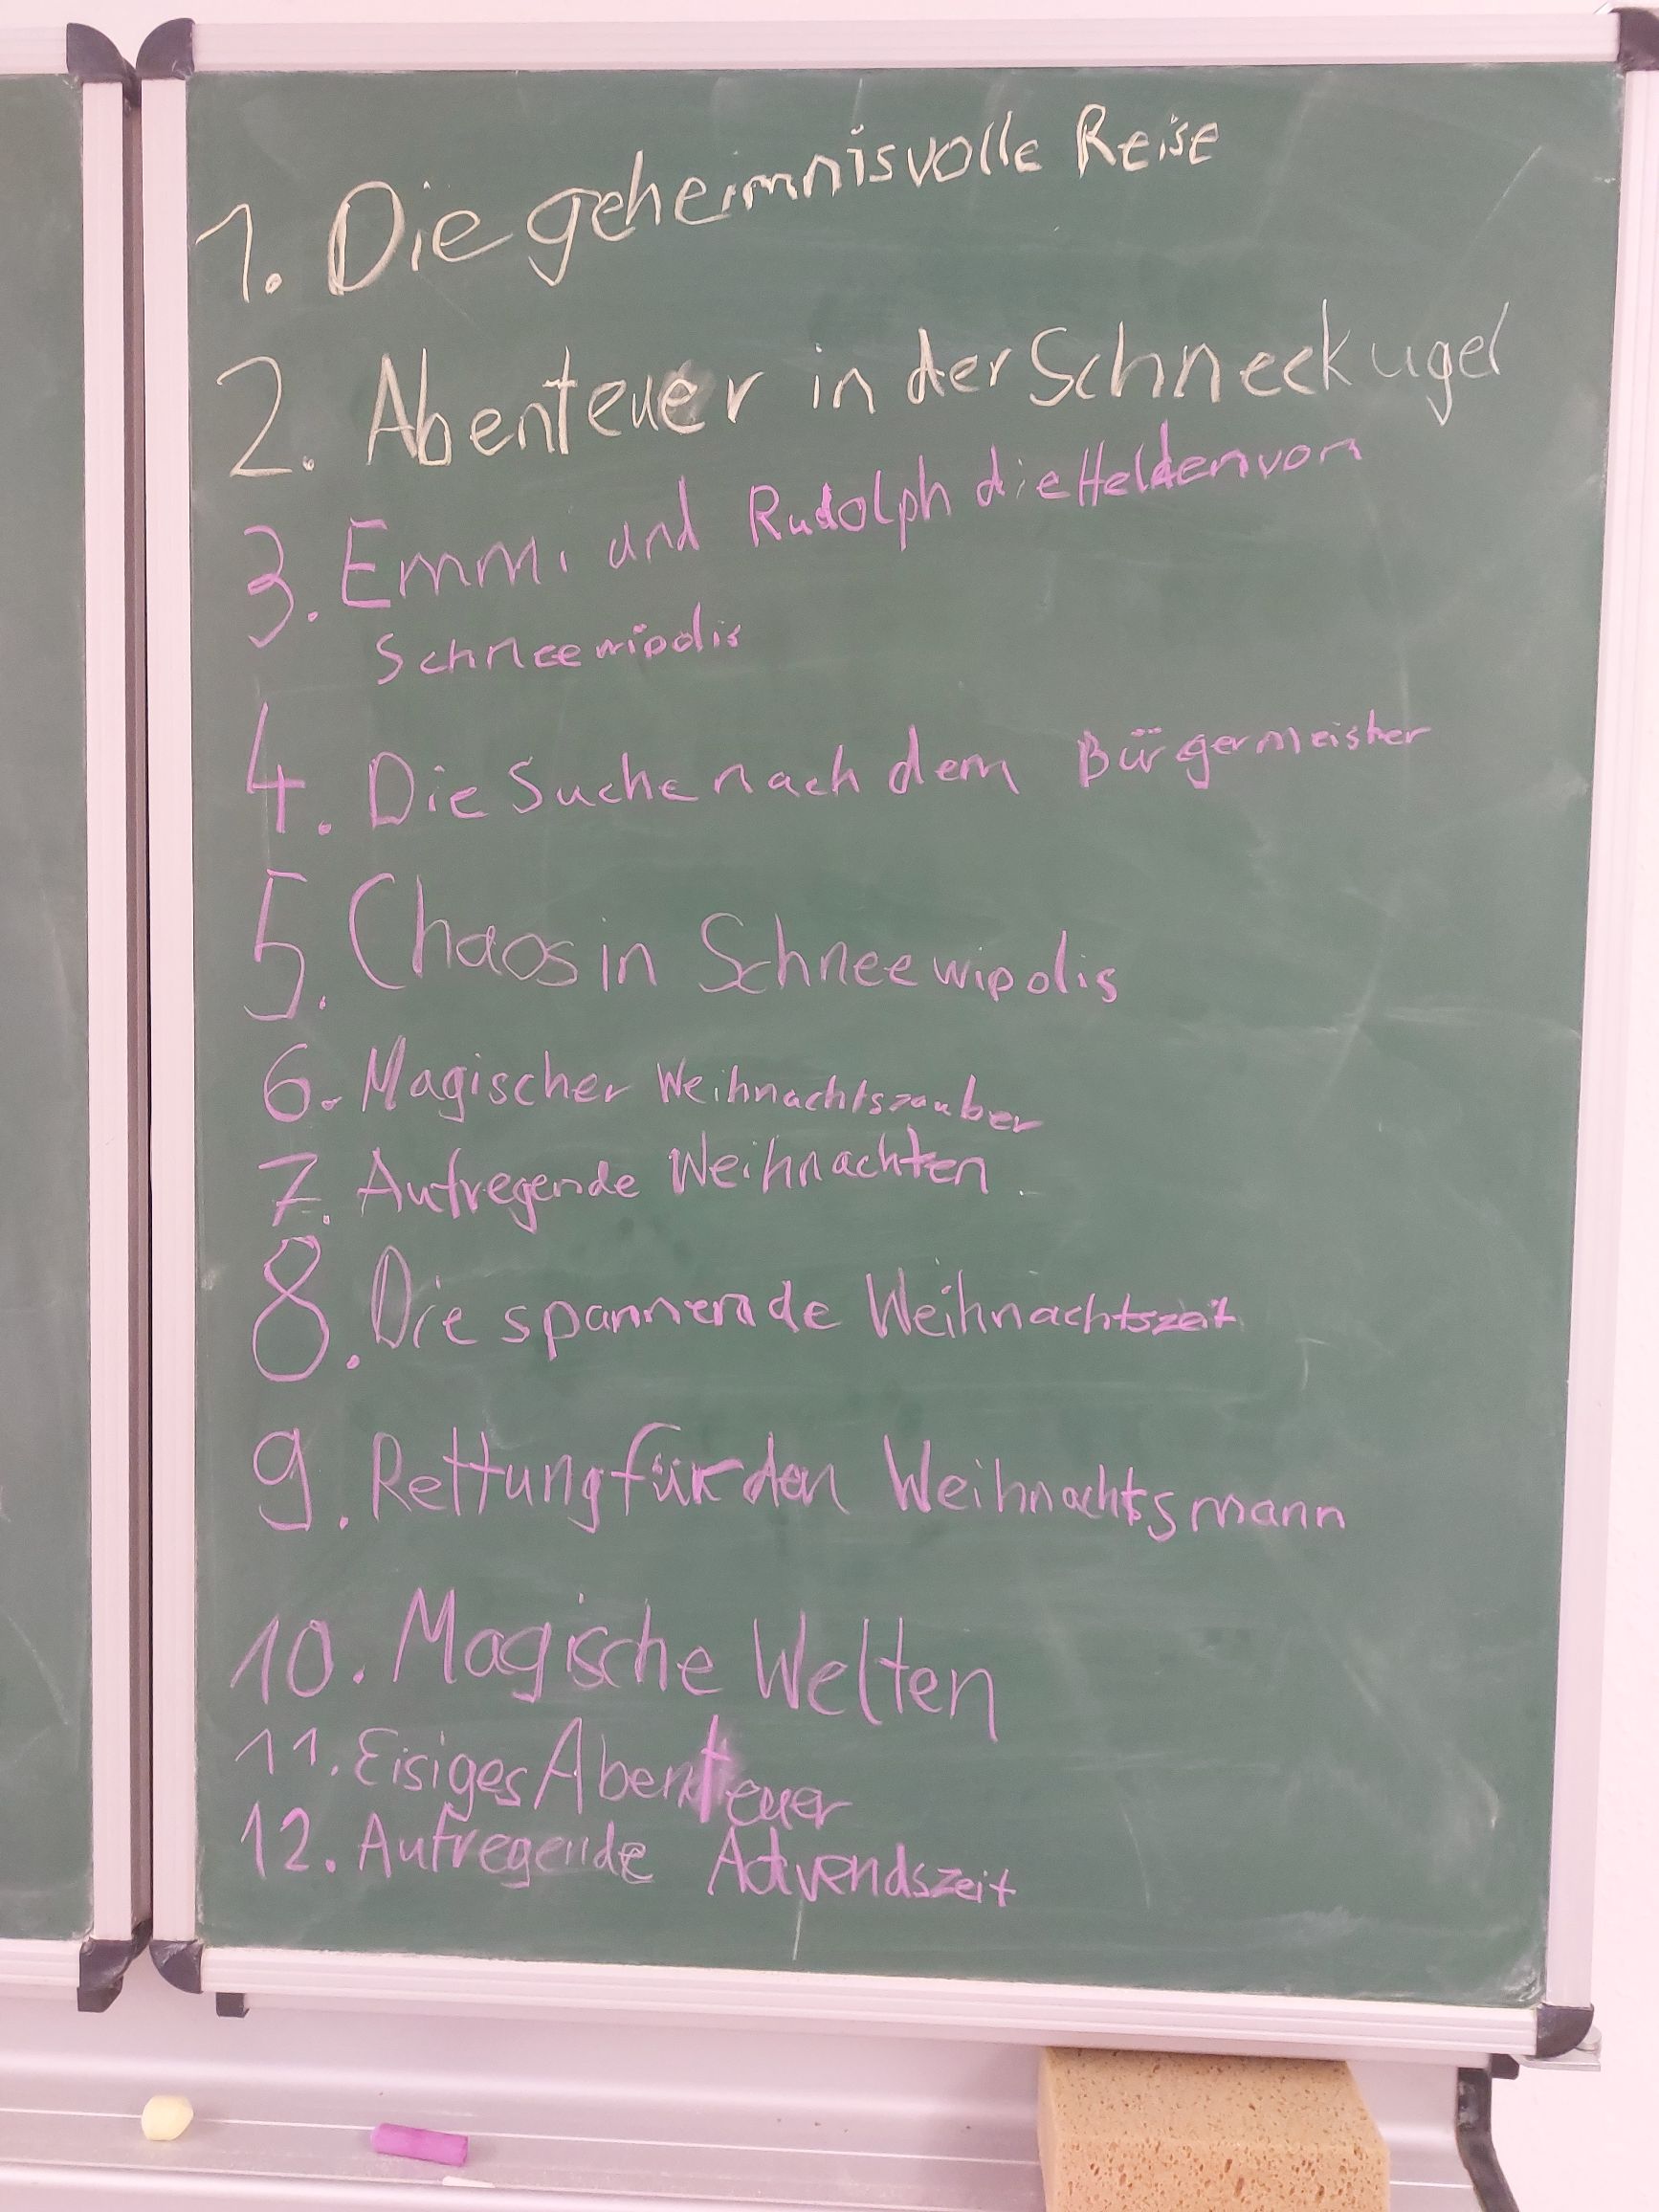 1. Die geheimnisvolle Reise
2. Abenteuer in der Schneekugel
3. Emmi und Rudolph die Helden von
Schneewipolis
4. Die Suche nach dem Bürgermeister
5. Chaos in Schneewipolis
6. Magischer Weihnachtszauber
7. Aufregende Weihnachten
8. Die spannende Weihnachtszeit
9. Rettung für den Weihnachtsmann
10. Magische Welten
11. Eisiges Abenteuer
12. Aufregende Advendszeit